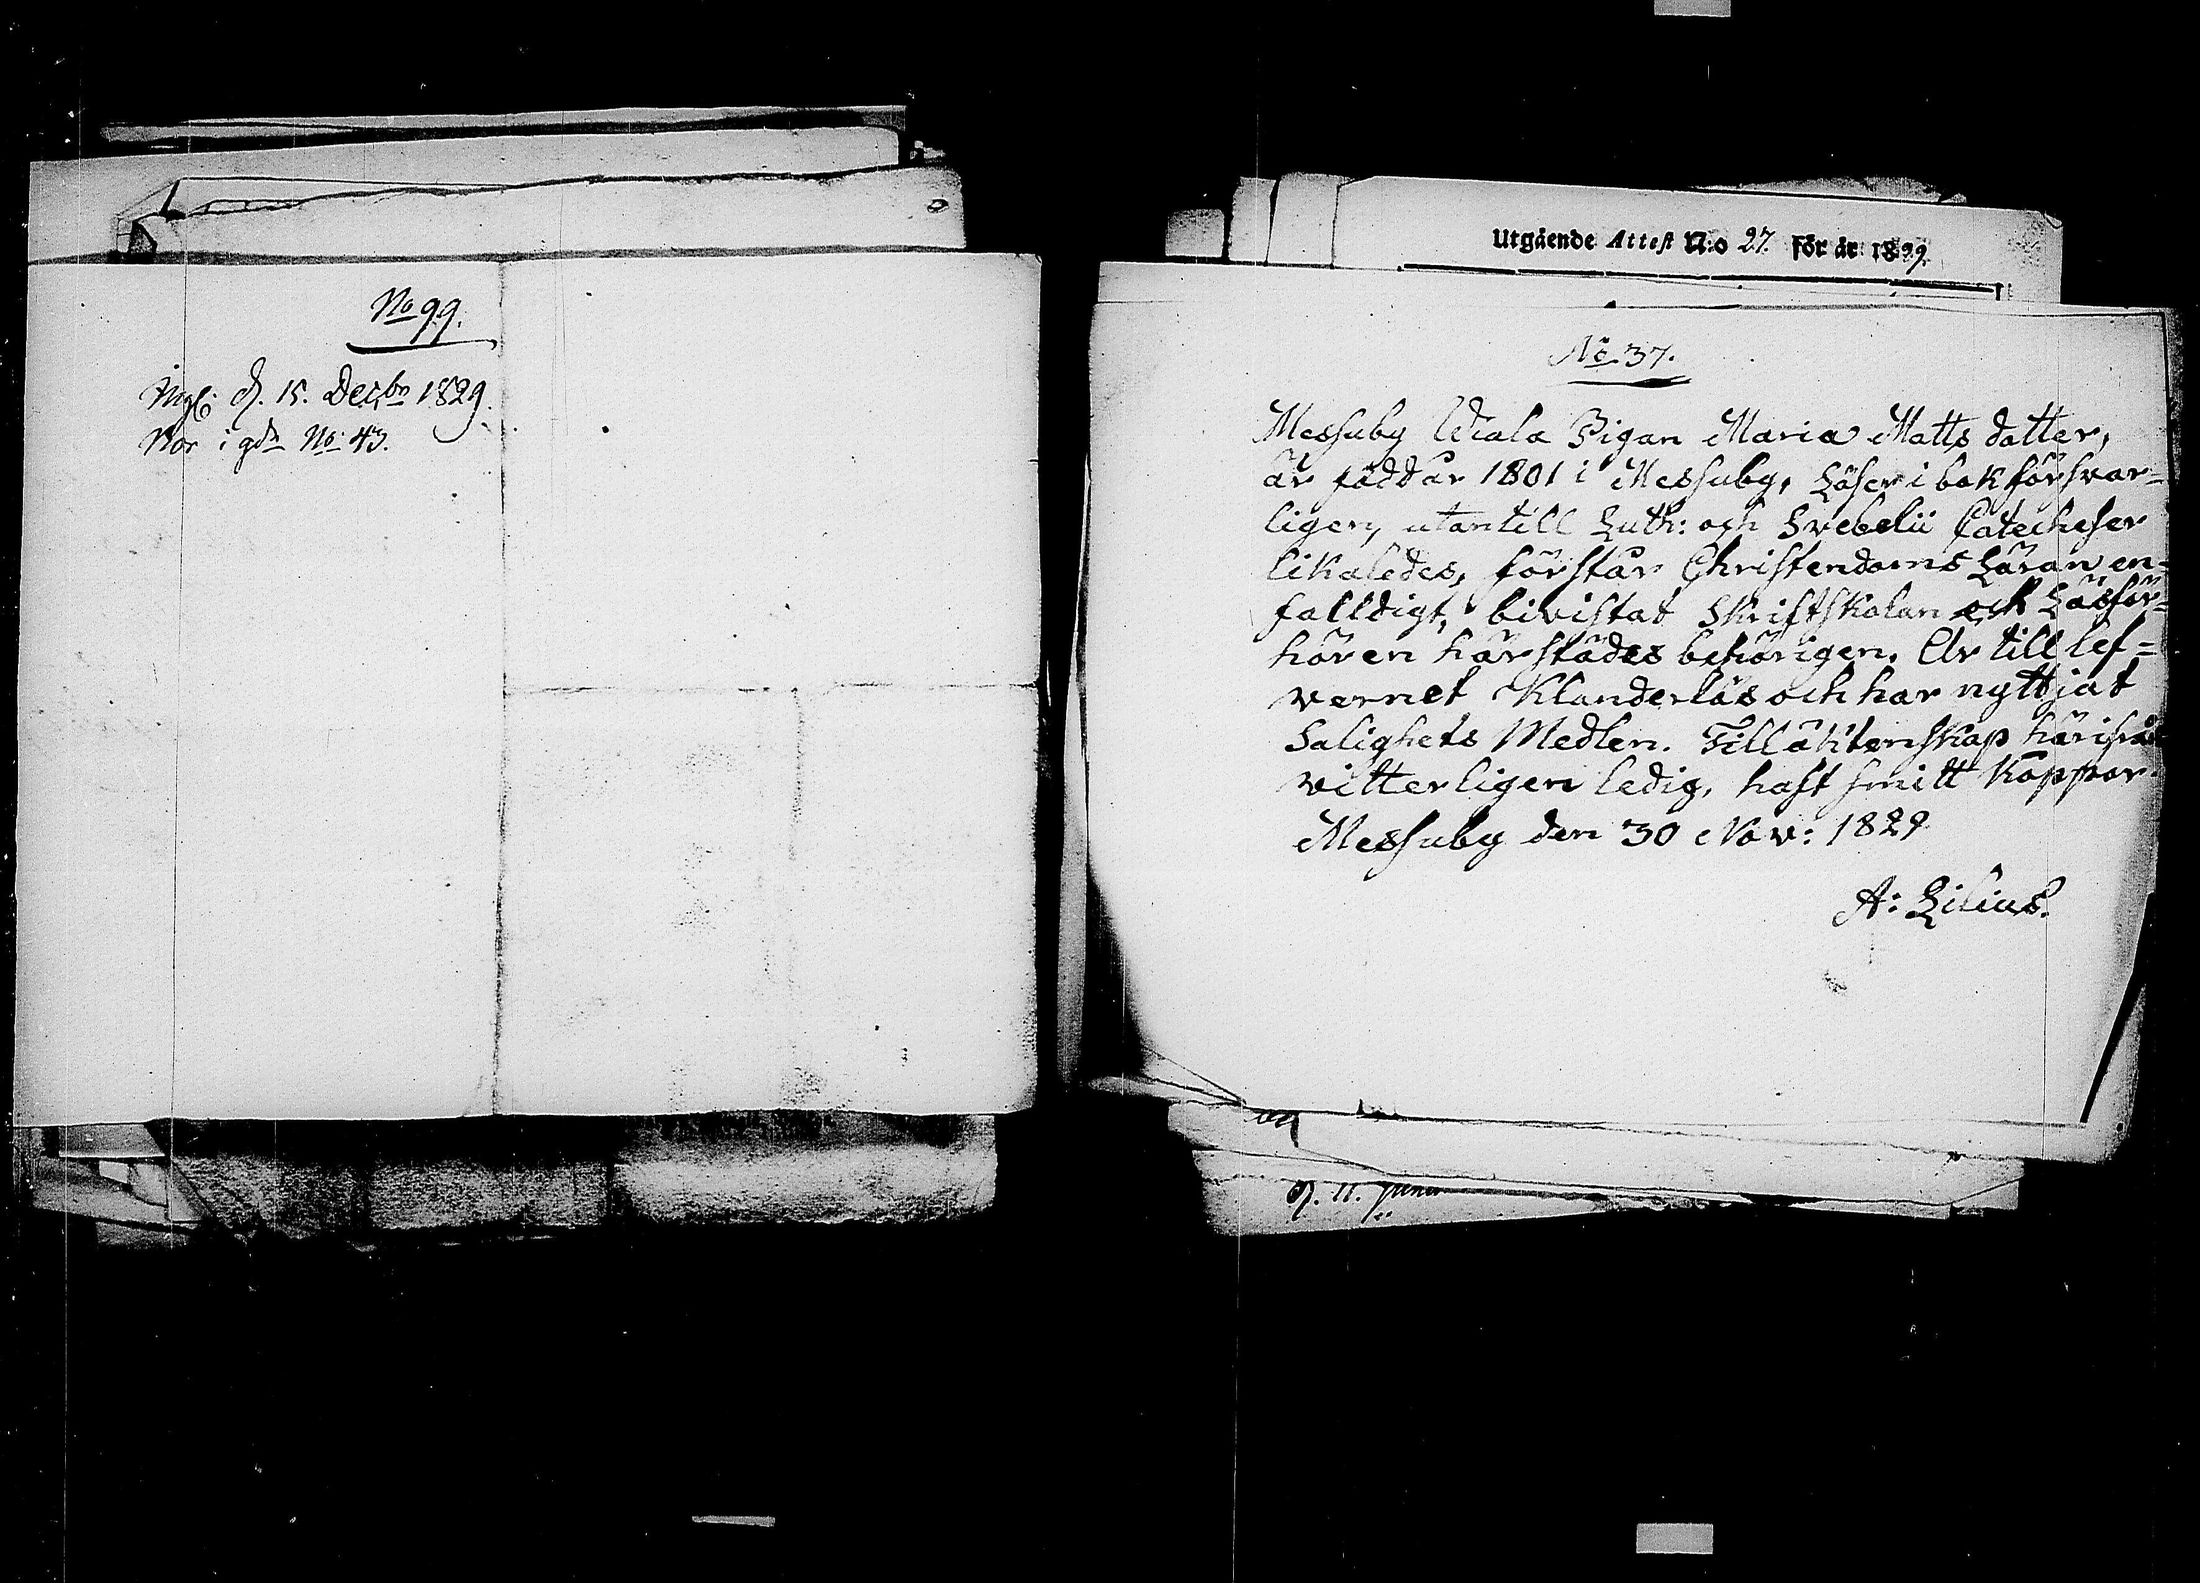 No 99.
d. 15. Decbr 1829.
No 43.
Utgående Attest N:o 27. För år 1829.
No 37.
Messuby Wiala Pigan Maria Matts dotter,
är född år 1801 i Messuby, Läser i bok försvar=
ligen, utantill Luth: och Svebelii Catecheser
likaledes, förstår Christendoms Läran en=
falldigt, bivistat Skriftskolan och Läsför=
hören härstädes behörigen. Är till lef=
vernet Klanderlös och har nyttjat
Salighets Medlen. Till äktenskap härifrån
vitterligen ledig, haft smitt Koppor.
Messuby den 30 Nov: 1829
A: Lilius.
d. 11. Junii